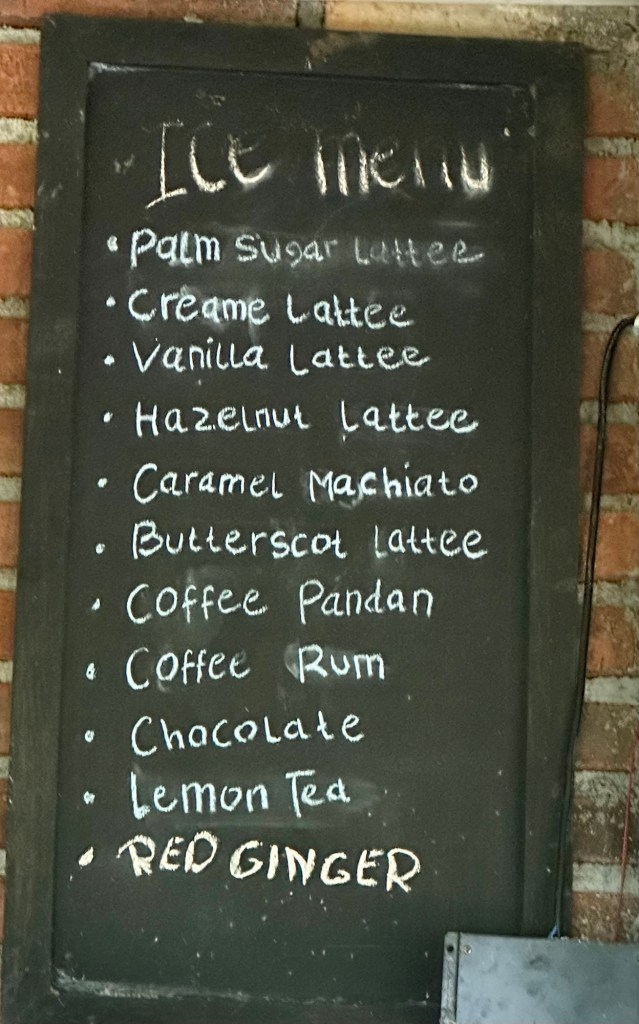 Ice Menu
• Palm Sugar Lattee
• Creame Lattee
• Vanilla Lattee
• Hazelnut Lattee
• Caramel Machiato
• Butterscot Lattee
• Coffee Pandan
• Coffee Rum
• Chocolate
• Lemon Tea
• RED GINGER